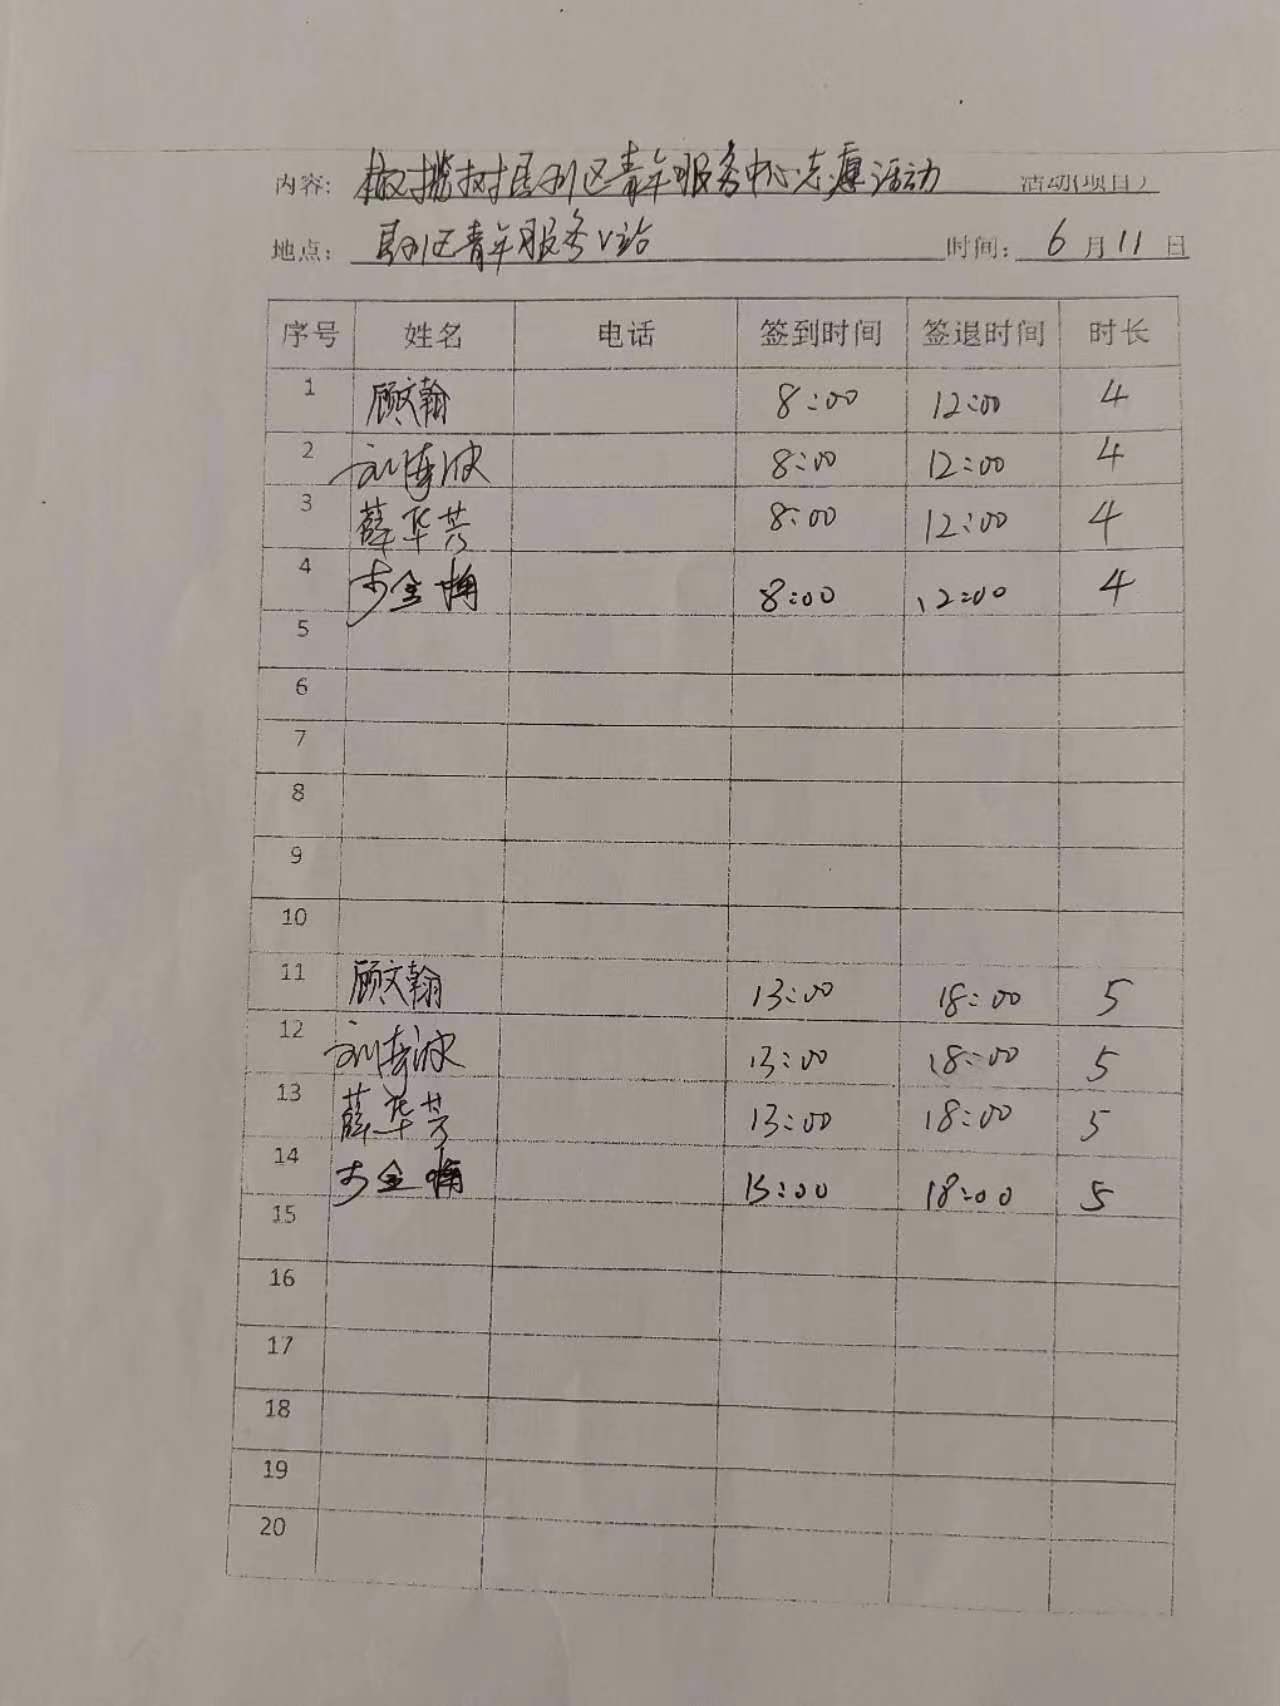 内容: 橄榄树县州区青年服务中心志愿活动 活动(项目)
地点: 县州区青年服务V站 时间: 6月11日
序号 姓名 电话 签到时间 签退时间 时长
1 顾文翰 8:00 12:00 4
2 刘海波 8:00 12:00 4
3 薛华芳 8:00 12:00 4
4 金梅 8:00 12:00 4
5
6
7
8
9
10
11 顾文翰 13:00 18:00 5
12 刘海波 13:00 18:00 5
13 薛华芳 13:00 18:00 5
14 金梅 13:00 18:00 5
15
16
17
18
19
20